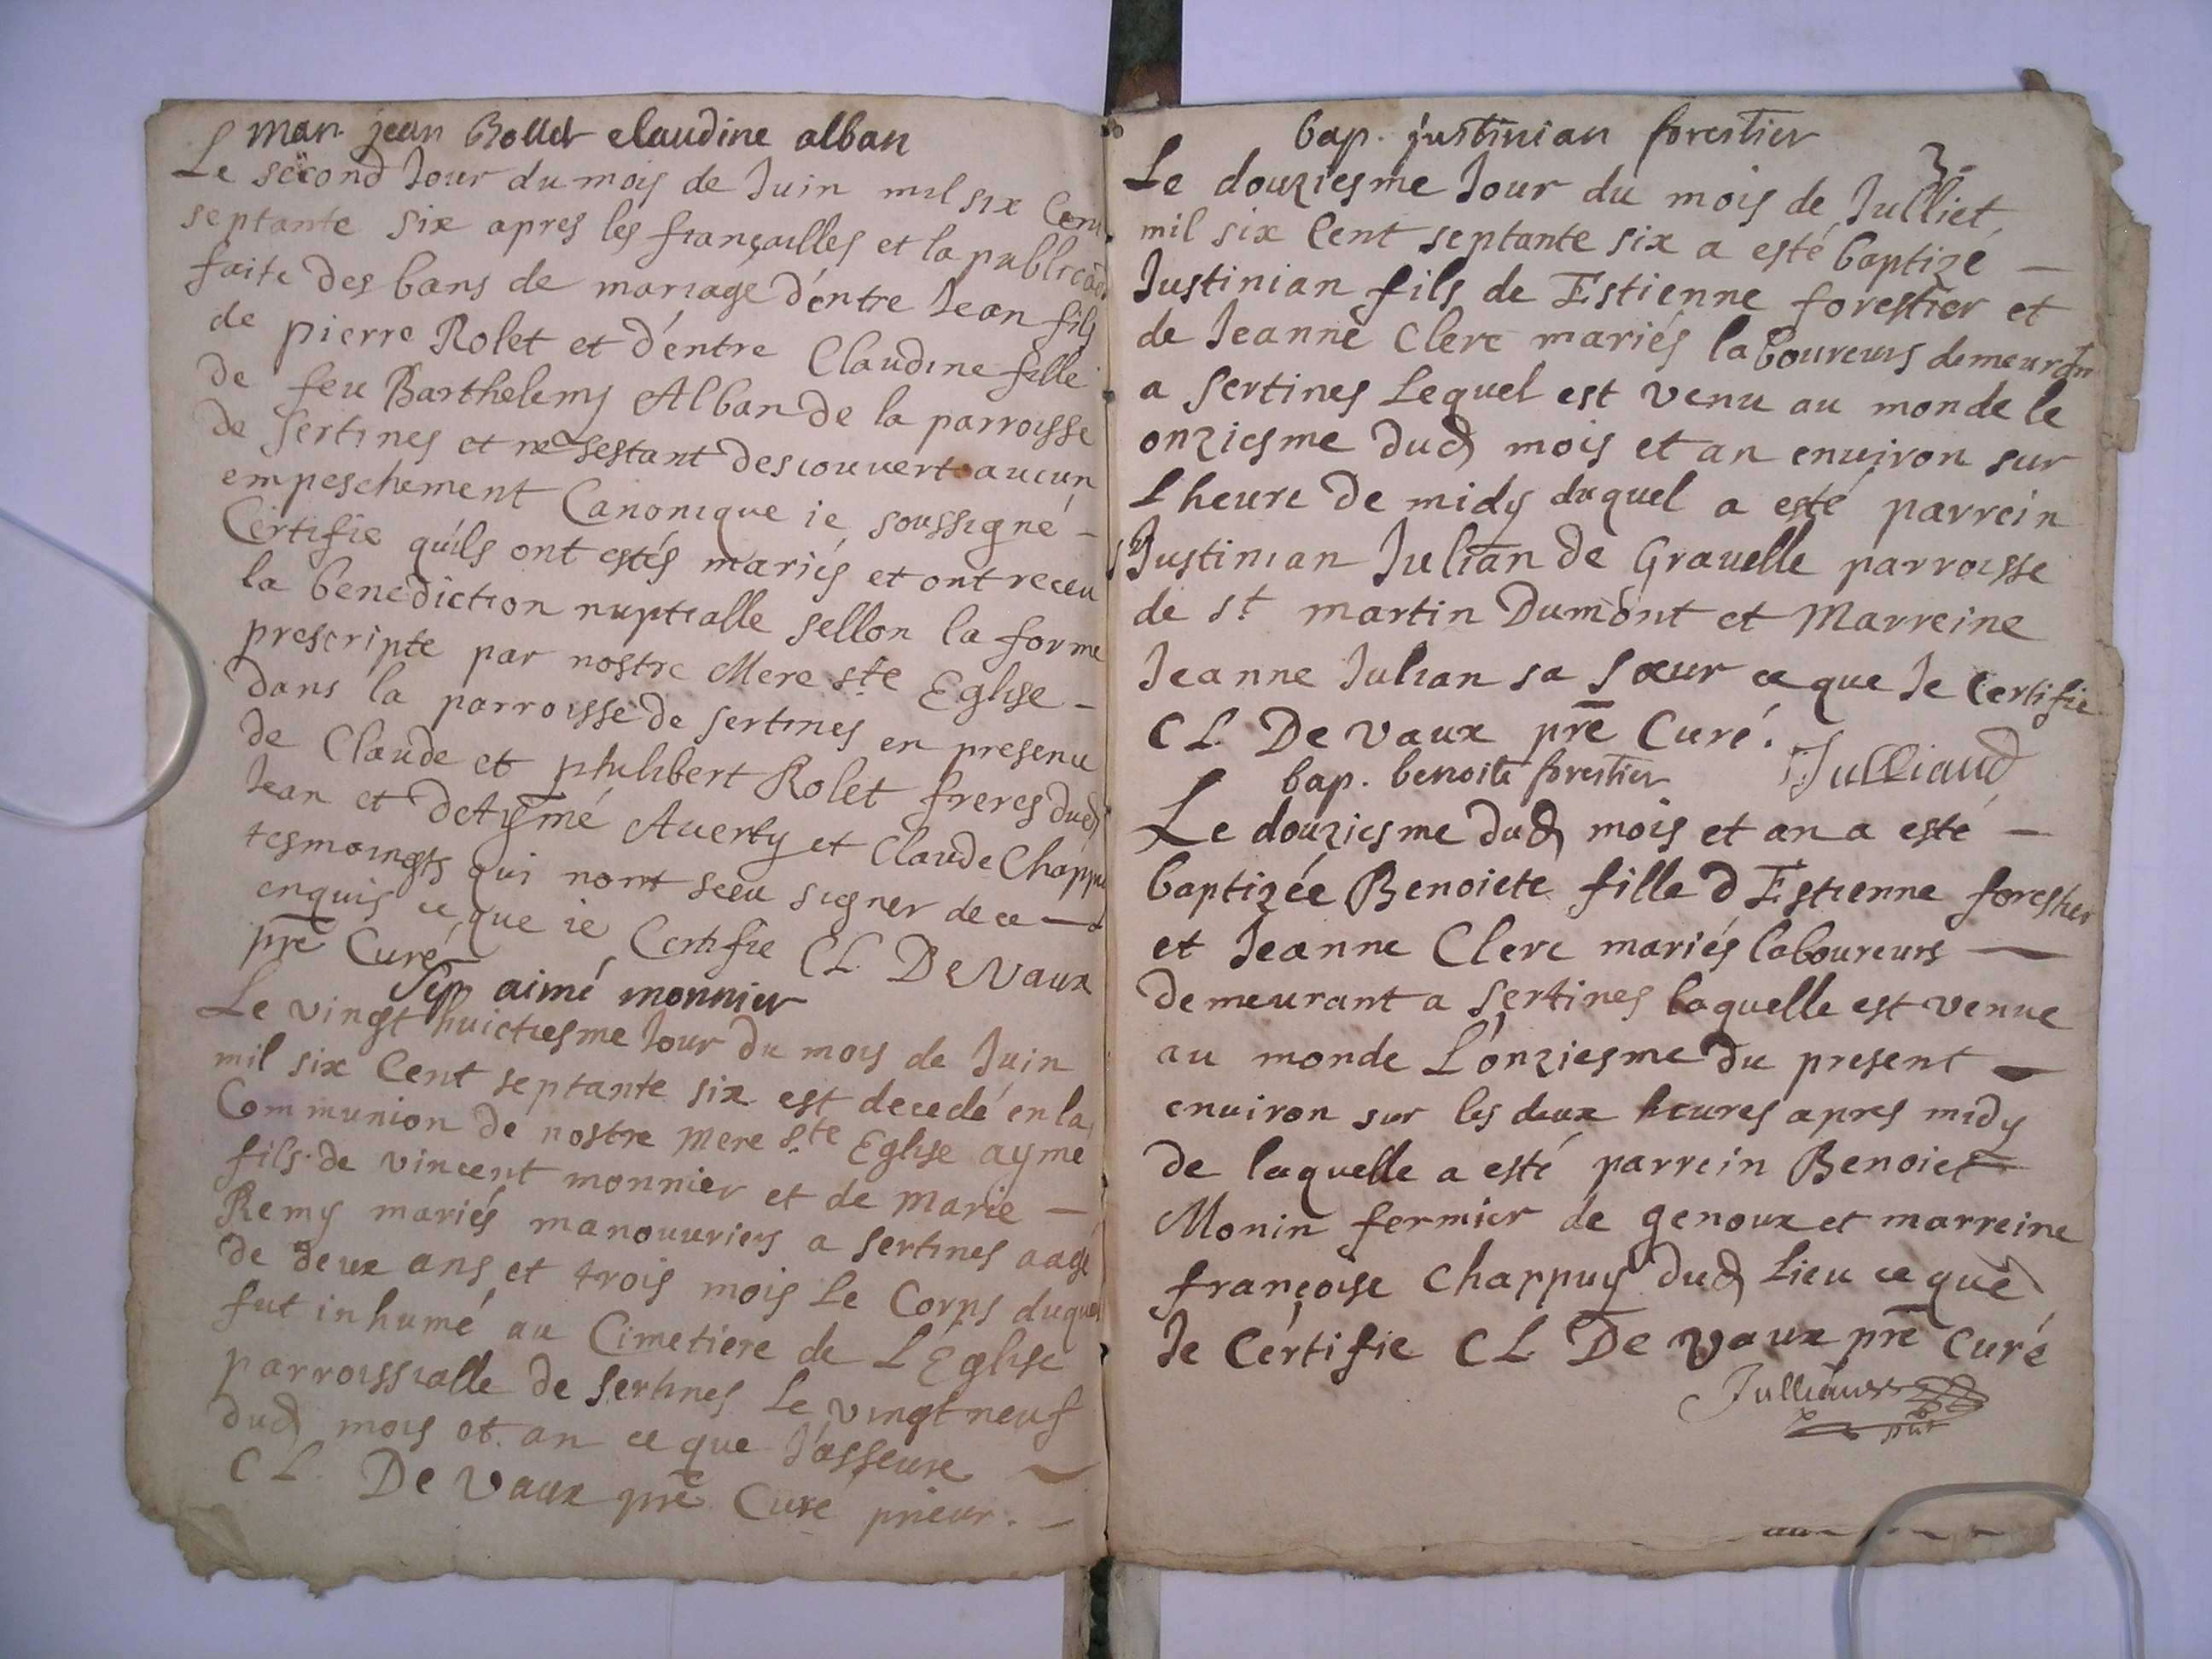 mar. jean Rollet claudine alban
Le second Jour du mois de Juin mil six Cent
septante six apres les françailles et la publicaõn
faite des bans de mariage d'entre Jean fils
de pierre Rolet et d'entre Claudine fille
de feu Barthelemy Alban de la parroisse
de Sertines et ne sestant descouvert aucun
empeschement Canonique ie soussigné -
Certifie qu'ils ont estés mariés et ont receu
la benediction nuptialle sellon la forme
prescripte par nostre Mere ste Eglise -
dans la parroisse de Sertines en presence
de Claude et philibert Rolet freres dud
Jean et de Aymé Averly et Claude Chappuy
tesmoingts qui nont sceu signer de ce —
enquis ce que ie Certifie CL. De Vaux
pre Curé
Sep aimé monnier
Le vingt huictiesme Jour du mois de Juin
mil six Cent septante six est decedé en la
Communion de nostre mere ste Eglise aymé
fils de vincent monnier et de marie —
Remy mariés manouuriers a Sertines aagé
de deux ans et trois mois Le Corps duquel
fut inhumé au Cimetiere de L'Eglise
parroissialle de Sertines Le vingt neuf
dud mois et an ce que J'asseure
CL. De Vaux pre Curé prieur. —
bap. justinian forestier
3.
Le douziesme Jour du mois de Julliet
mil six Cent septante six a esté baptizé —
Justinian fils de Estienne forestier et
de Jeanne Clerc mariés laboureurs demeurãn
a Sertines Lequel est venu au monde le
onziesme dud mois et an enuiron sur
L heure de midy duquel a esté parrein
Justinian Julian de Grauelle parroisse
de st martin Dumont et Marreine
Jeanne Julian sa Sœur ce que Je Certifie
CL. De Vaux pre Curé.
Julliaud
bap. benoite forestier
Le douziesme dud mois et an a esté —
baptizée Benoiete fille d Estienne forestier
et Jeanne Clerc mariés laboureurs —
demeurant a Sertines laquelle est venue
au monde L'onziesme du present —
enuiron sur les deux heures apres midy
de laquelle a esté parrein Benoiet
Monin fermier de genoux et marreine
françoise Chappuy dud Lieu ce que
Je Certifie CL. De Vaux pre Curé